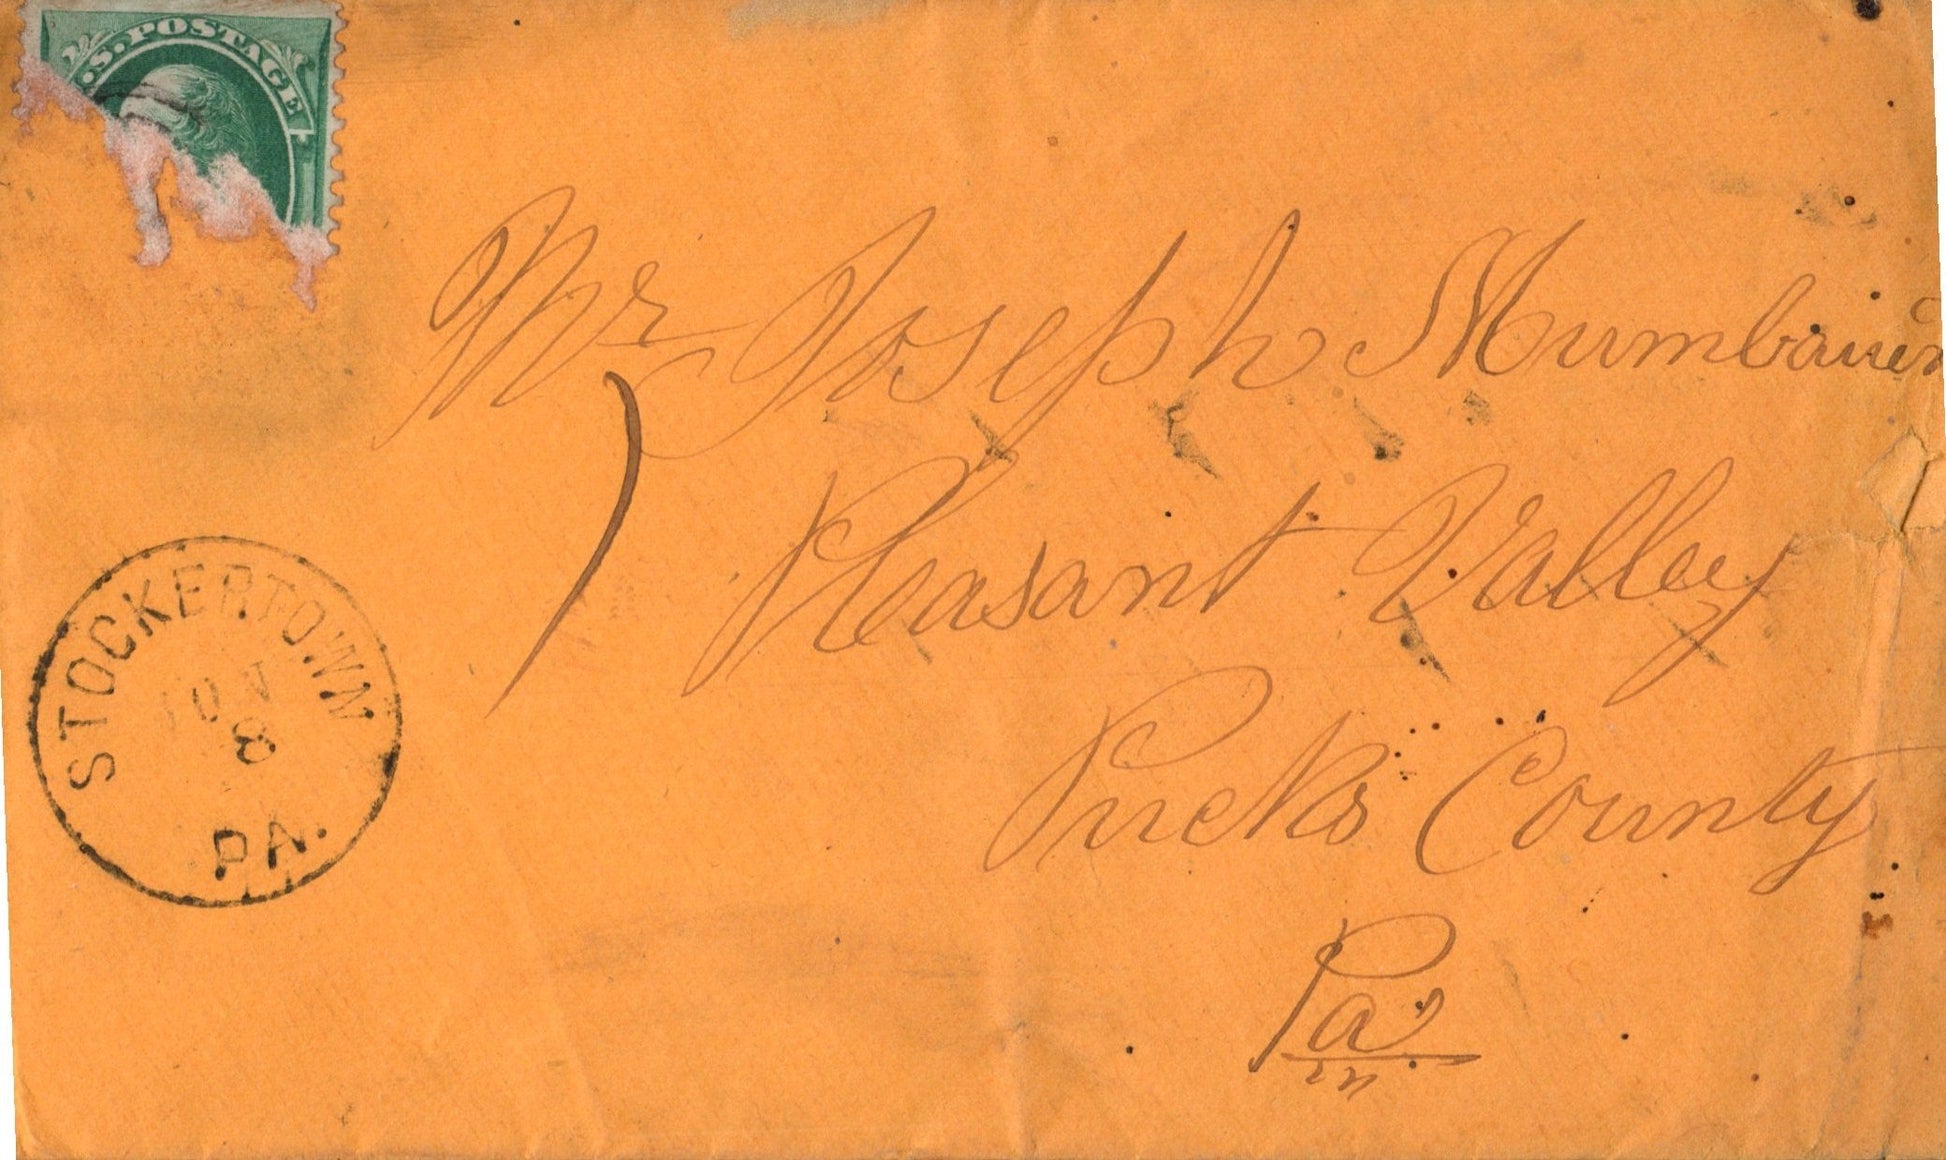 U.S. POSTAGE
Mr Joseph Mumbauer
Pleasant Valley
Bucks County
Pa
STOCKERTOWN
NOV
8
PA.